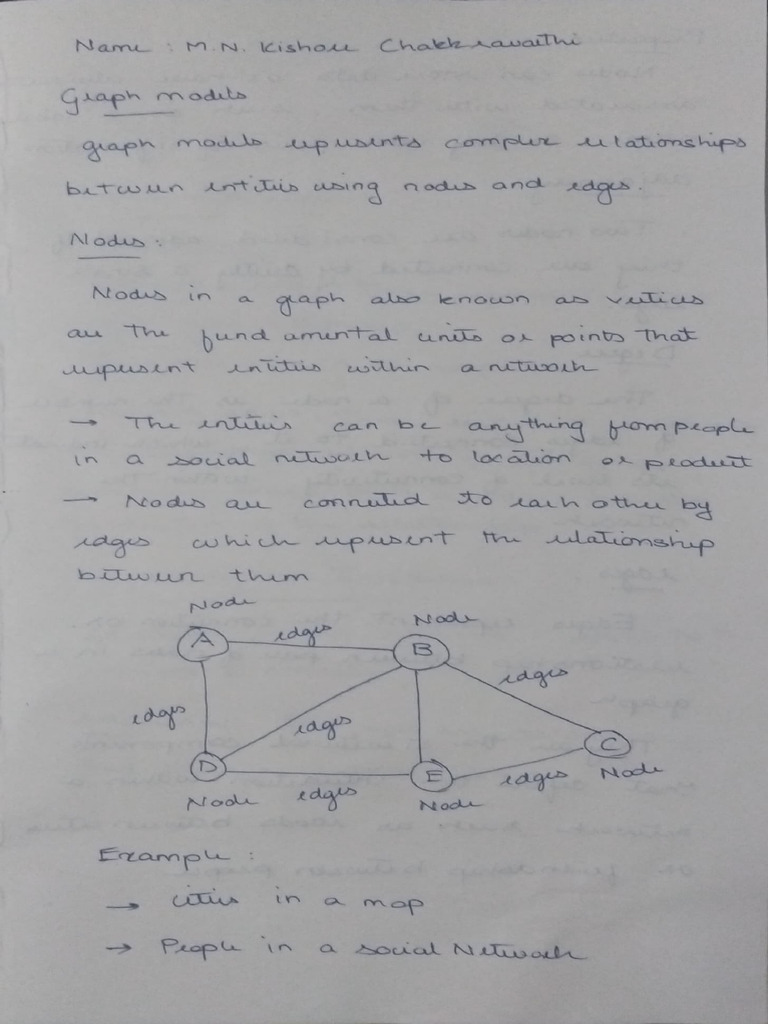 Name : M.N. Kishore Chakkravarthi
Graph models
graph models represents complex relationships
between entities using nodes and edges.
Nodes :
Nodes in a graph also known as vertices
are the fundamental units or points that
represent entities within a network
→ The entities can be anything from people
in a social network to location or product
→ Nodes are connected to each other by
edges which represent the relationship
between them
Node
Node
A edges B
edges
edges
edges
C
D
E
edges
edges
Node
Node
Node
Example :
→ cities in a map
→ People in a social Network